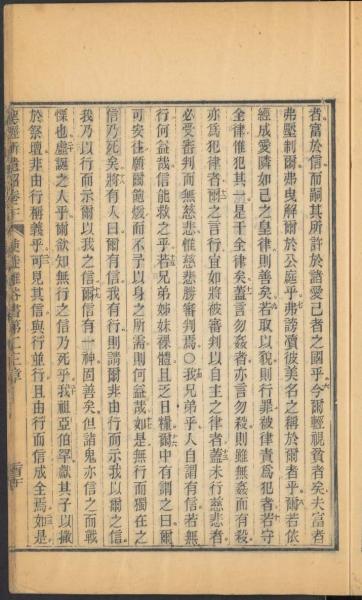 者富於信而嗣其所許於諸愛己者之國乎今爾輕視貧者矣夫富者
弗壓制爾弗曳解爾於公庭乎弗謗讟彼美名之稱於爾者乎爾若依
經成愛隣如己之皇律則善矣若取以貌則行罪被律責爲犯者若守
全律惟犯其一是干全律矣蓋言勿姦者亦言勿殺則雖無姦而有殺
亦爲犯律者爾之言行宜如將被審判以自主之律者蓋未行慈悲者
必受審判而無慈悲惟慈悲勝審判焉○我兄弟乎人自謂有信若無
行何益哉信能救之乎若兄弟姊妹裸體且乏日糧爾中有謂之曰爾
可安往願爾飽煖而不予以身之所需則何益哉如是無行而獨在之
信乃死矣將有人曰爾有信我有行則請爾非由行而示我以爾之信
我乃以行而示爾以我之信爾信有一神固善矣但諸鬼亦信之而戰
慄也虛誕之人乎爾欲知無行之信乃死乎我祖亞伯罕獻其子以撒
於祭壇非由行稱義乎可見其信與行並行且由行而信成全焉如是
使徒雅各書第二三章